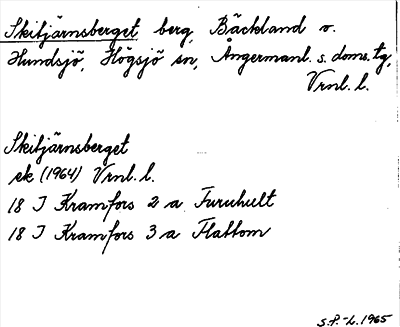 Skitjärnsberget, berg, Bäckland o.
Hundsjö, Högsjö sn, Ångermanl. s. doms. tg,
Vrnl. l.
Skitjärnsberget
ek (1964) Vrnl. l.
18 I Kramfors 2 a Furuhult
18 I Kramfors 3 a Flattom
S.F.-L. 1965